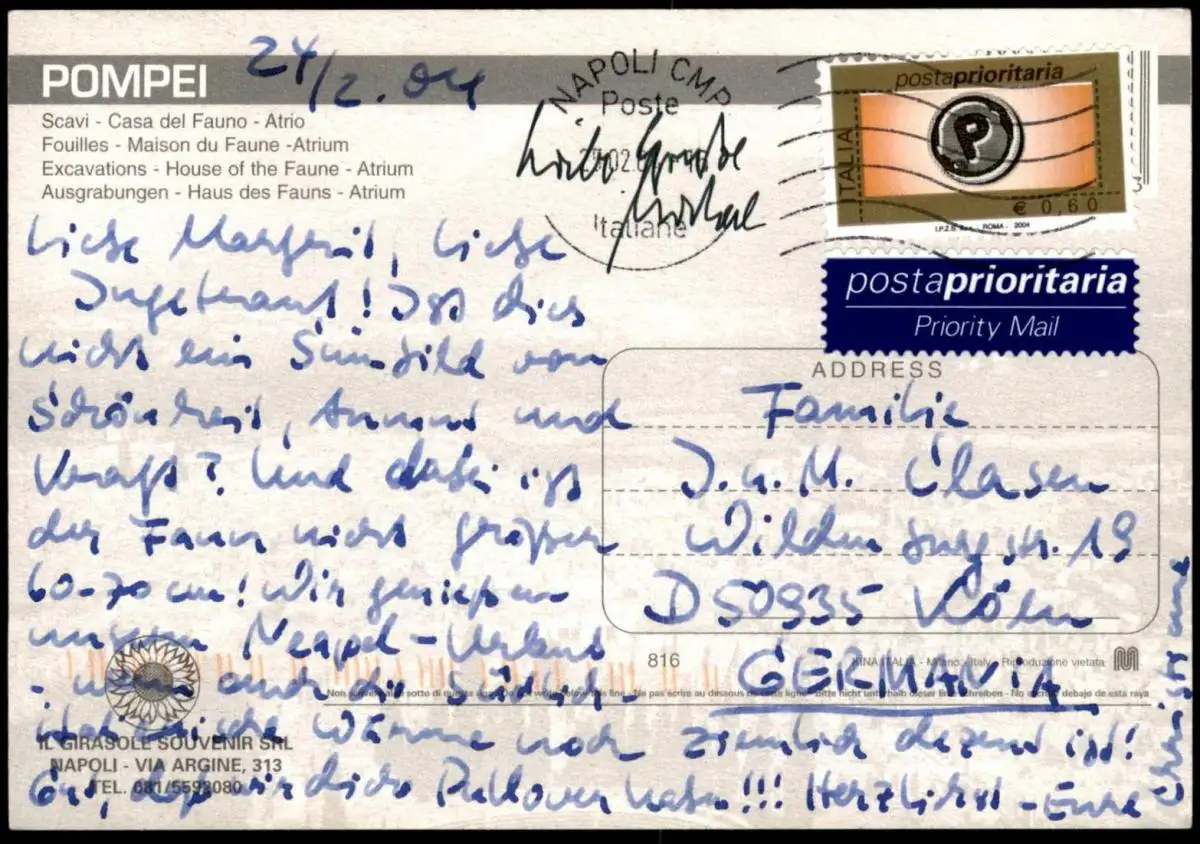 POMPEI
24/2.04
Scavi - Casa del Fauno - Atrio
Fouilles - Maison du Faune -Atrium
Excavations - House of the Faune - Atrium
Ausgrabungen - Haus des Fauns - Atrium
NAPOLI CMP
Poste
Italiane
Liebe Grüße
Michael
postaprioritaria
P
ITALIA
€ 0,60
I.P.Z.S. S.p.A. ROMA - 2004
postaprioritaria
Priority Mail
Liebe Margerit, liebe
! Ist dies
nicht ein Sinnbild von
Schönheit, Anmut und
Kraft? Und dabei ist
der Faun nicht größer
60-70 cm! Wir genießen
unseren Neapel-Urlaub
- wenn auch die südlich
italienische Wärme noch ziemlich dezent ist!
Gut, daß wir dicke Pullover haben!!! Herzlichst - Eure
Christiane
ADDRESS
Familie
J. u. M. Clasen
Wildenburgstr. 19
D 50935 Köln
GERMANIA
816
KINA ITALIA - Milano - Italy - Riproduzione vietata
Non scrivere al di sotto di questa riga - Do not write below this line - Ne pas ecrire au dessous de cette ligne - Bitte nicht unterhalb dieser linie schreiben - No escribir debajo de esta raya
IL GIRASOLE SOUVENIR SRL
NAPOLI - VIA ARGINE, 313
TEL. 081/5592080